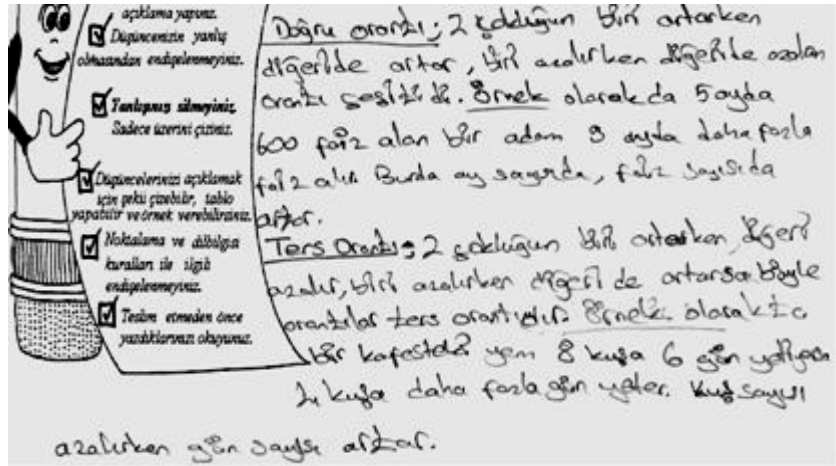 açıklama yapınız.
Düşüncenizin yanlış
olmasından endişelenmeyiniz.
Yanlışınızı silmeyiniz.
Sadece üzerini çiziniz.
Düşüncelerinizi açıklamak
için şekil çizebilir, tablo
yapabilir ve örnek verebilirsiniz.
Noktalama ve dilbilgisi
kuralları ile ilgili
endişelenmeyiniz.
Teslim etmeden önce
yazdıklarınızı okuyunuz.
Doğru orantı: 2 çokluğun biri artarken
diğeride artar, biri azalırken diğeride azalan
orantı çeşitidi. Örnek olarakda 5 ayda
600 faiz alan bir adam 9 ayda daha fazla
faiz alır. Burda ay sayısıda, faiz sayısıda
artar.
Ters Orantı: 2 çokluğun biri artarken, diğeri
azalır, biri azalırken diğeri de artarsa böyle
orantılar ters orantıdır. Örnek olarakta
bir kafesteki yem 8 kuşa 6 gün yetiyorsa
4 kuşa daha fazla gün yeter. Kuş sayısı
azalırken gün sayısı artar.